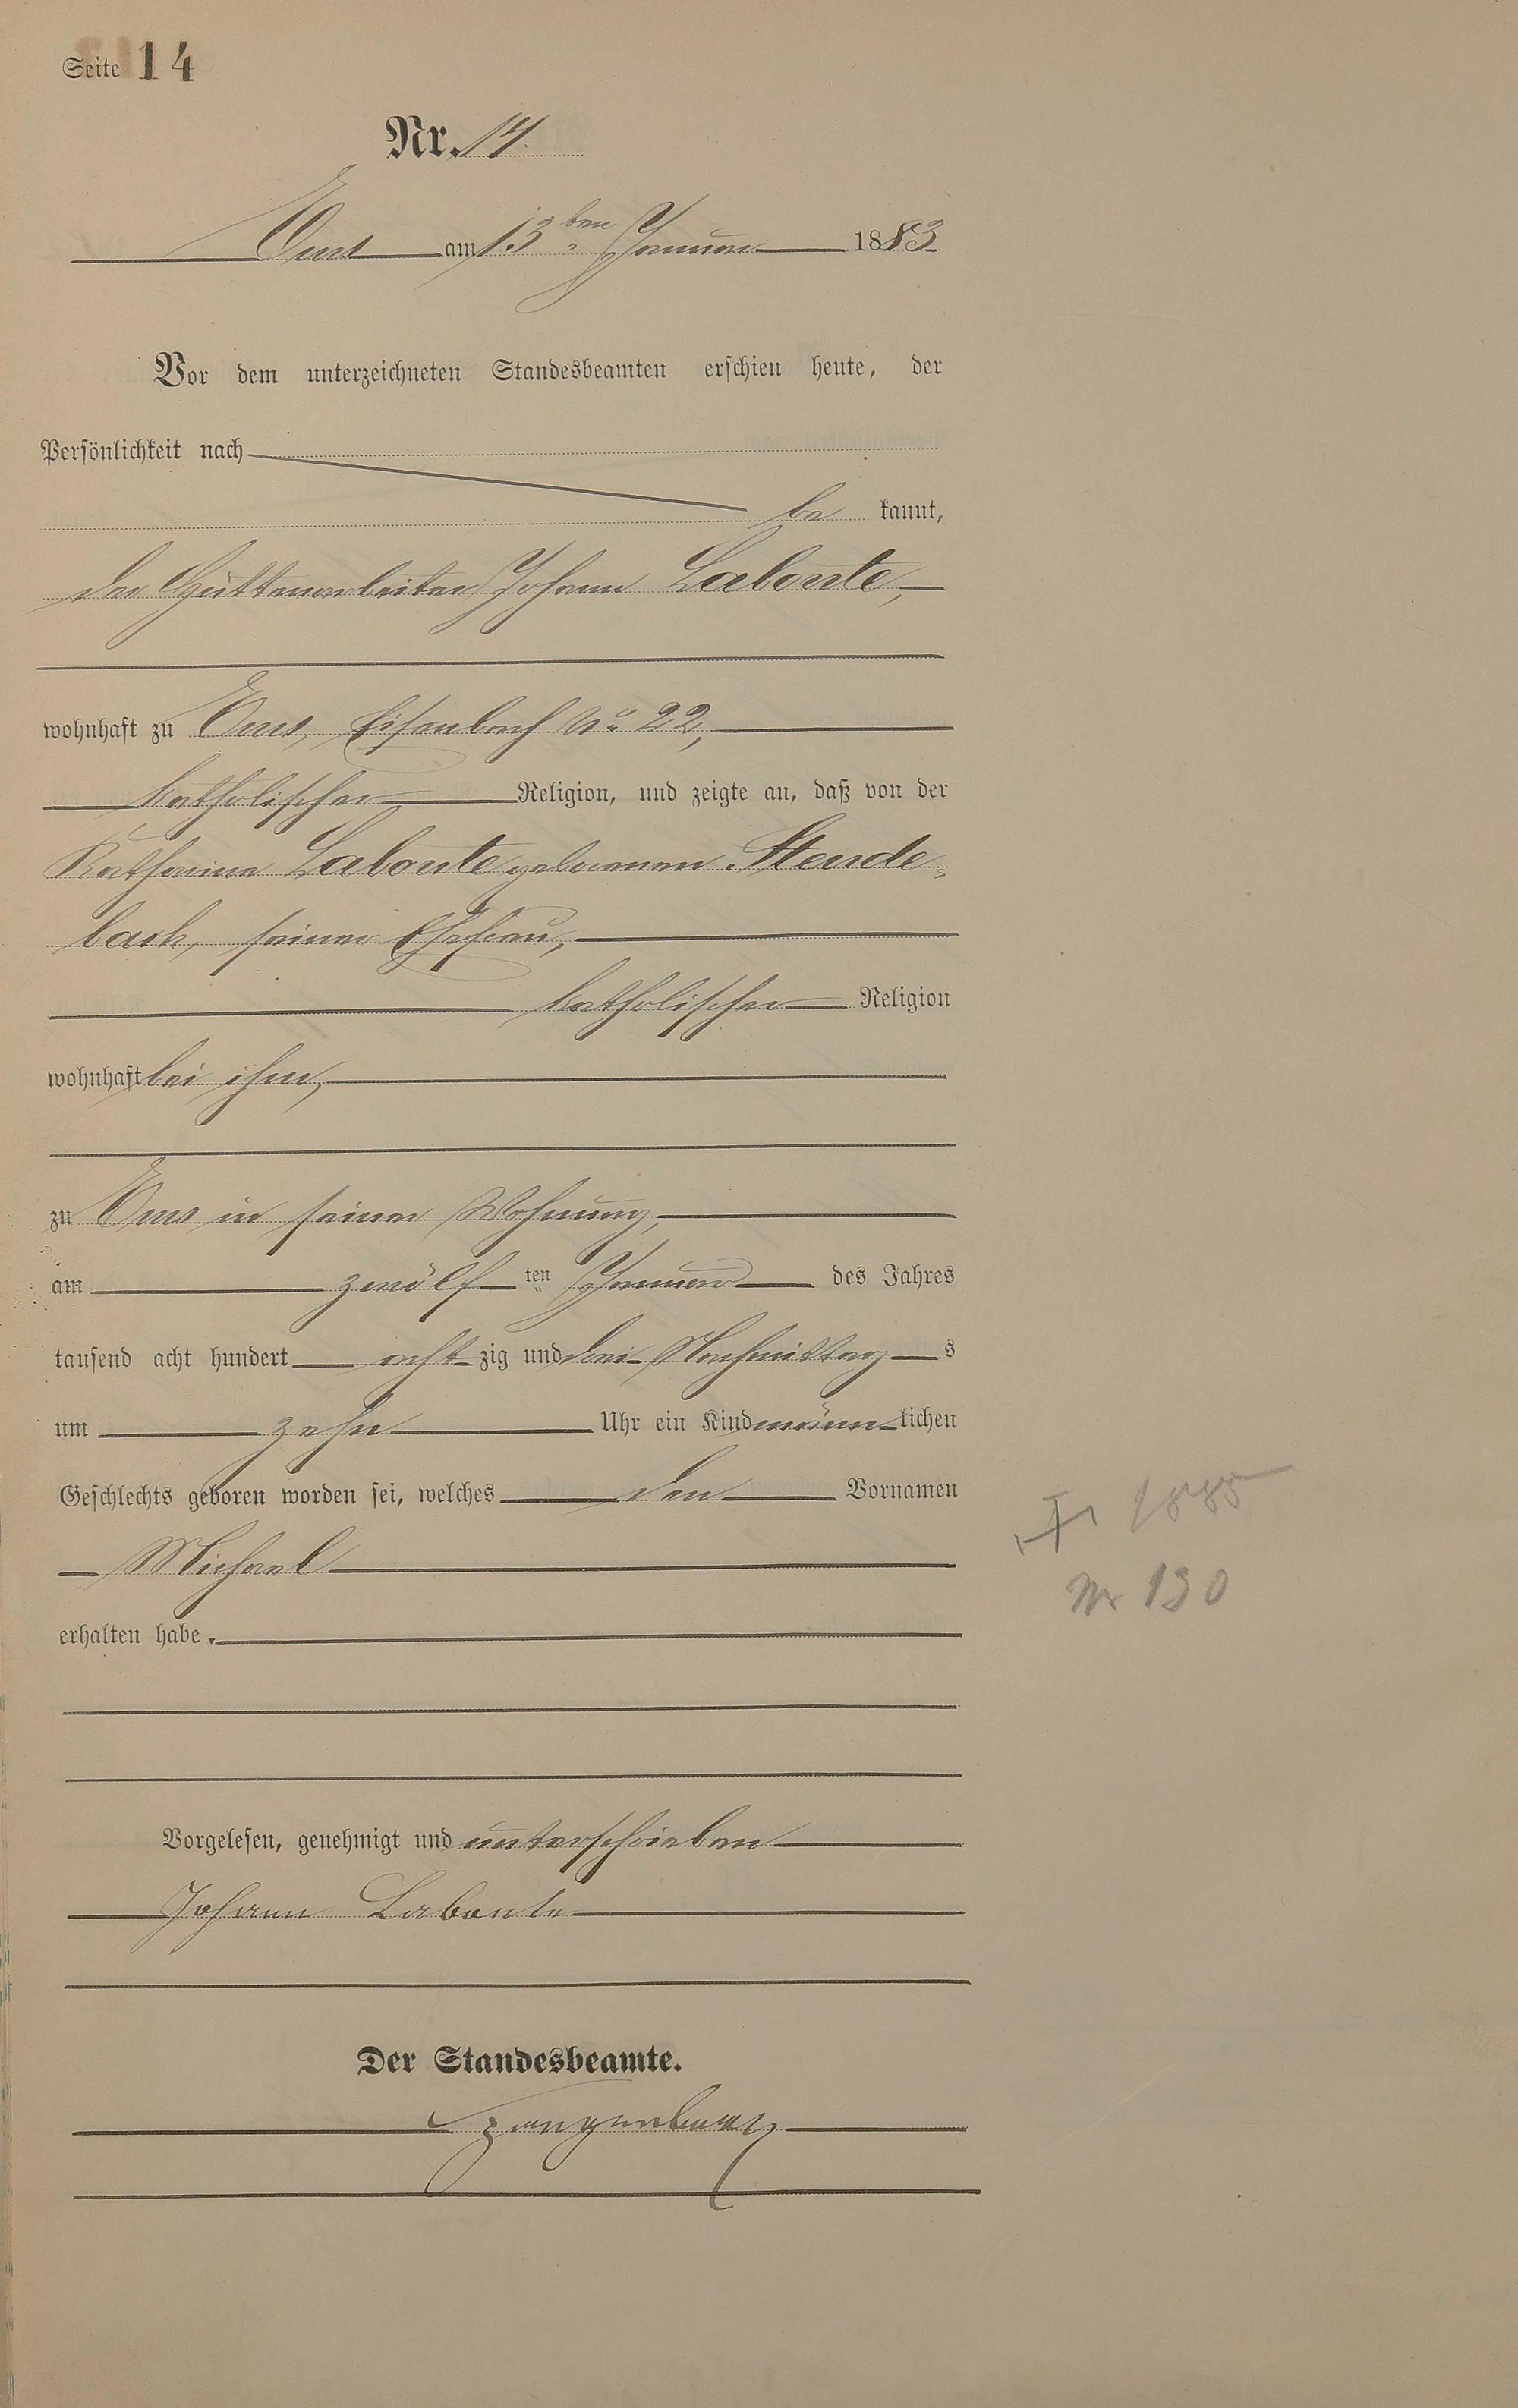 Seite 14
Nr. 14.
Ems am 13ten Januar 1883
Vor dem unterzeichneten Standesbeamten erschien heute, der
Persönlichkeit nach
be kannt,
der Hüttenarbeiter Johann Labonte,
wohnhaft zu Ems, Eisenbach No 22,
katholischer Religion, und zeigte an, daß von der
Katharina Labonte geborenen Stende-
bach, seiner Ehefrau,
katholischer Religion
wohnhaft bei ihm,
zu Ems in seiner Wohnung,
am zwölf ten Januar des Jahres
tausend acht hundert acht zig und drei Nachmittag s
um zehn Uhr ein Kind männ lichen
Geschlechts geboren worden sei, welches den Vornamen
Michael
erhalten habe.
† 1885
Nr 130
Vorgelesen, genehmigt und unterschrieben
Johann Labonte
Der Standesbeamte.